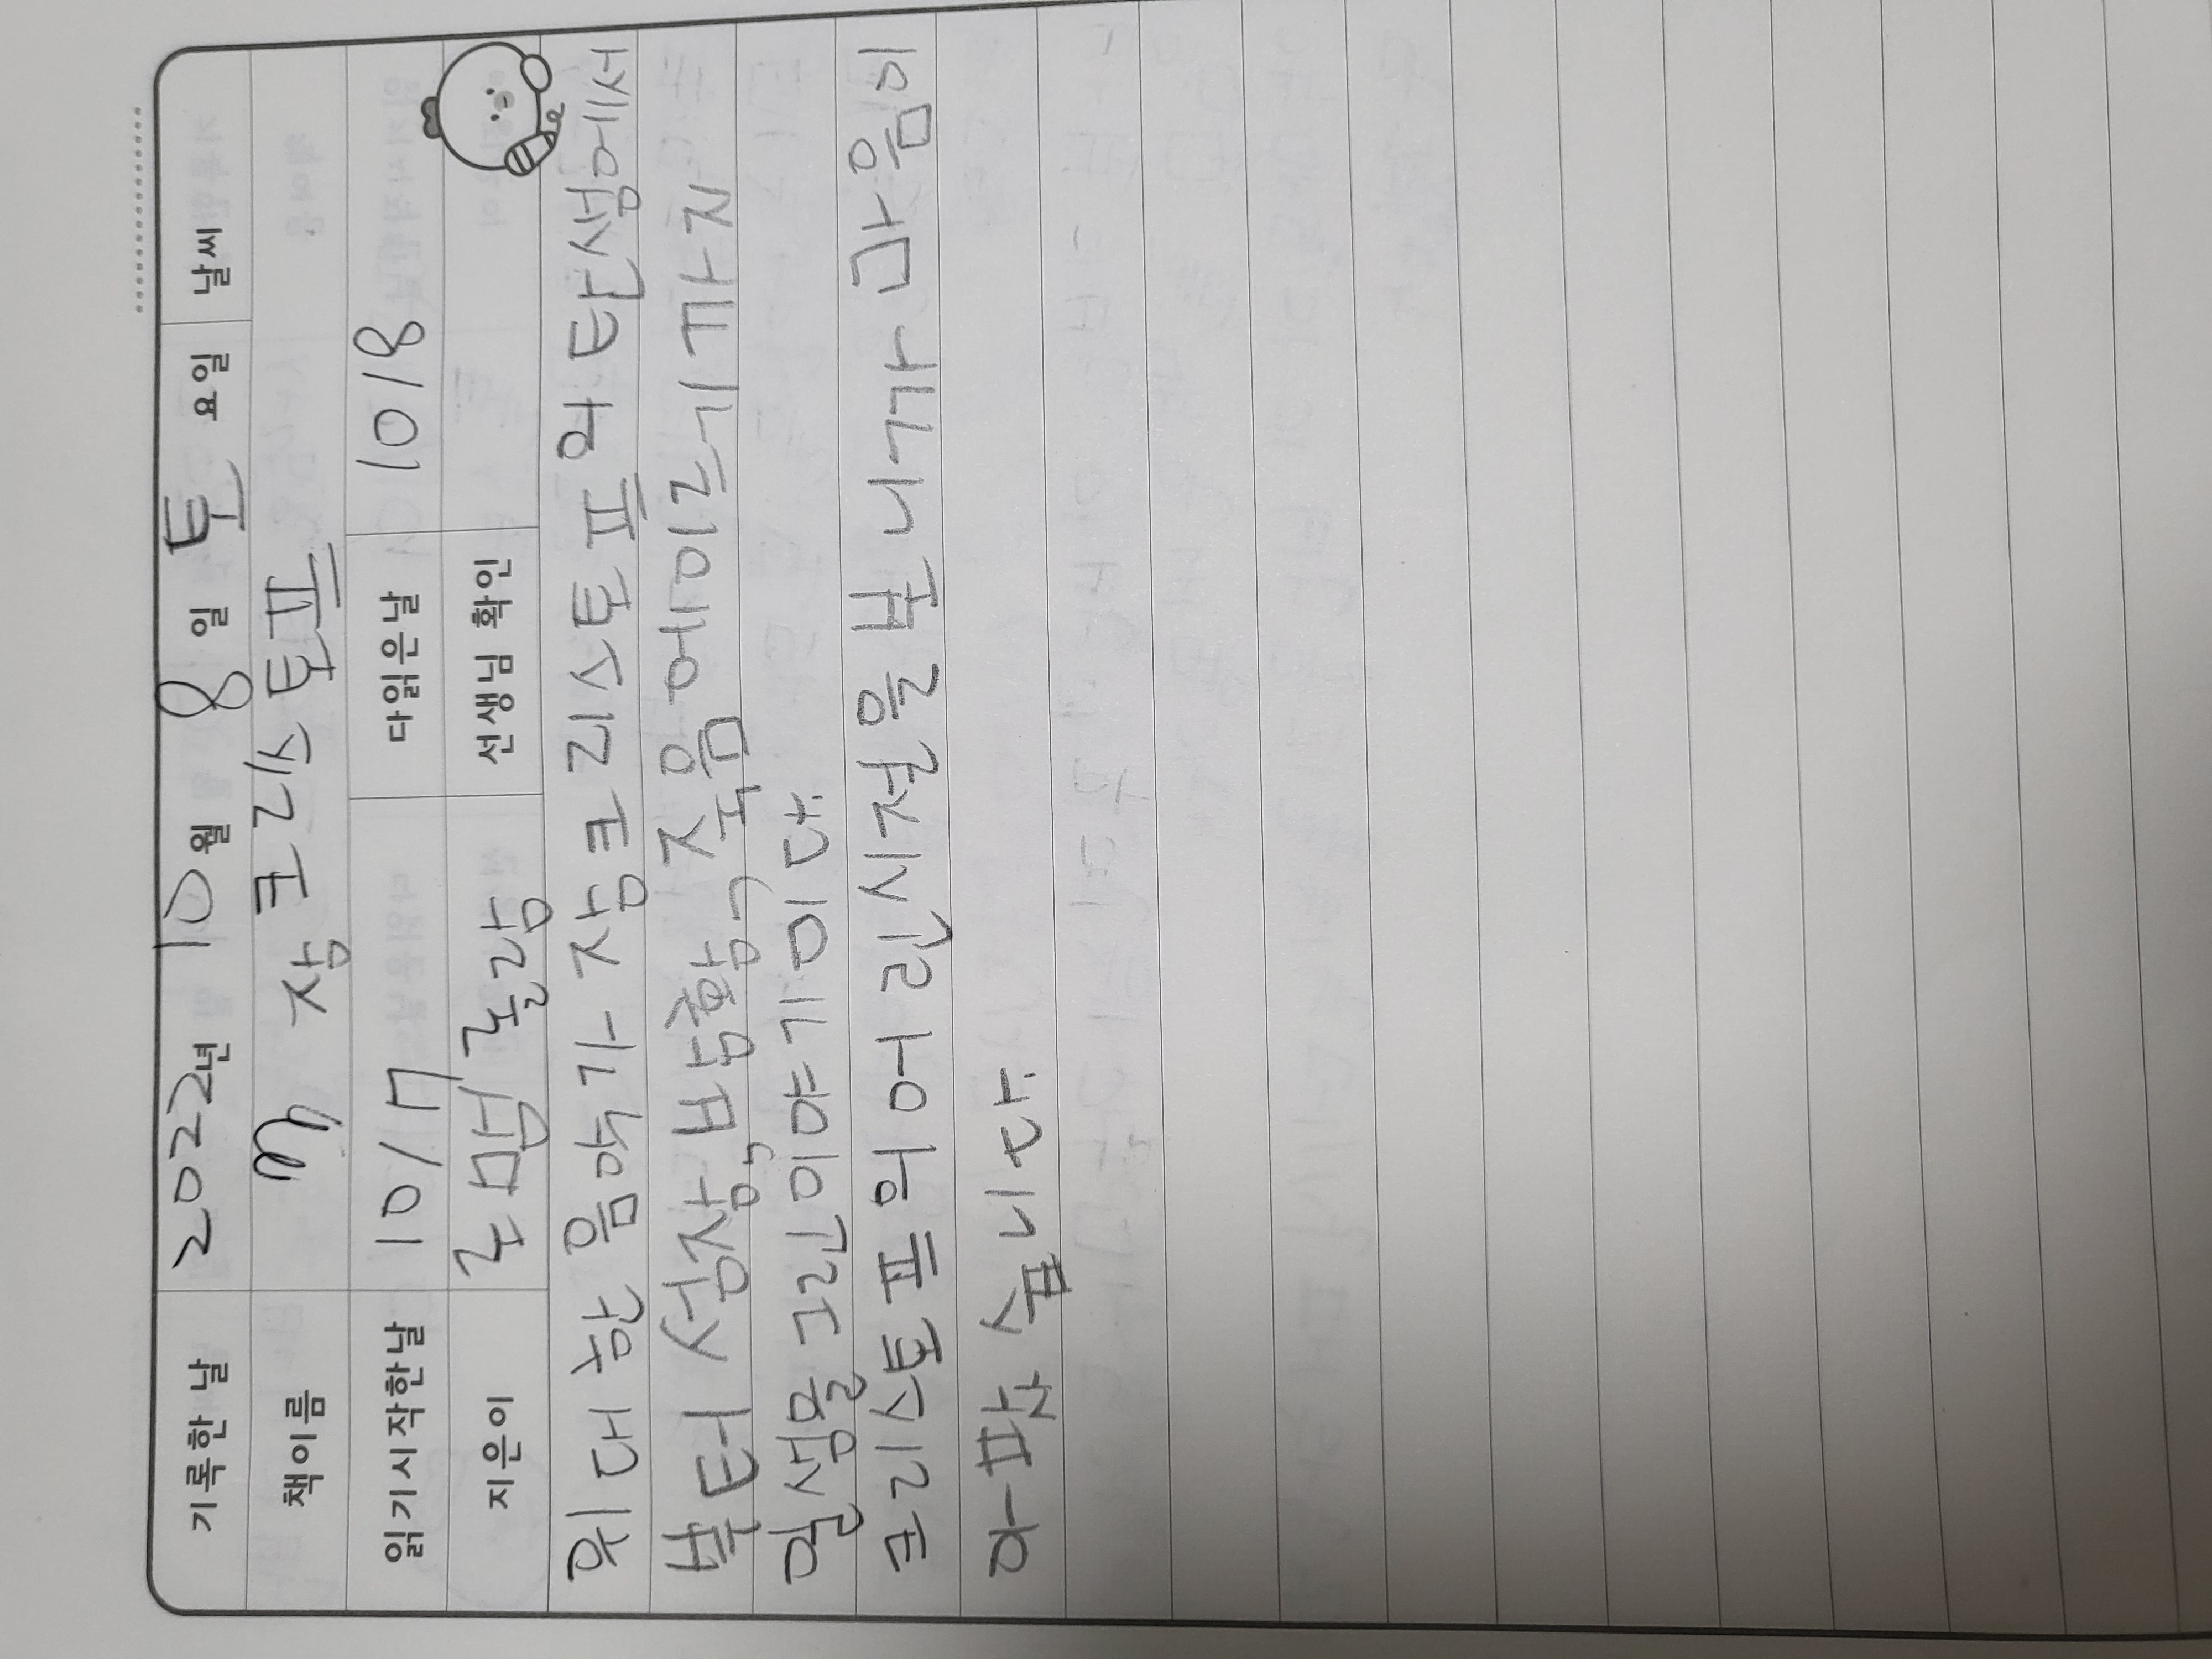 기록한 날 2022년 10월 8일 토요일 날씨
책이름 장 크리스토프
읽기시작한날 10/7 다읽은날 10/8
지은이 로맹 롤랑 선생님 확인
위대한 음악가 장크리스토프의 탄생에서
부터 성장, 방황, 죽음에이르기까지
일생을 그린이야기이다.
크리스토프의 어린시절을 보니까 마음이
아팠습니다.